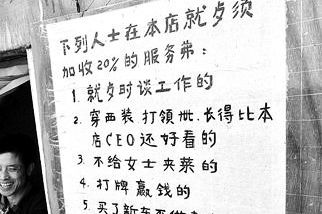 下列人士在本店就歺须
加收20%的服务弗:
1. 就歺时谈工作的
2. 穿西装.打领带.长得比本
店CEO还好看的
3. 不给女士夹菜的
4. 打牌赢钱的
5. 买了新车不